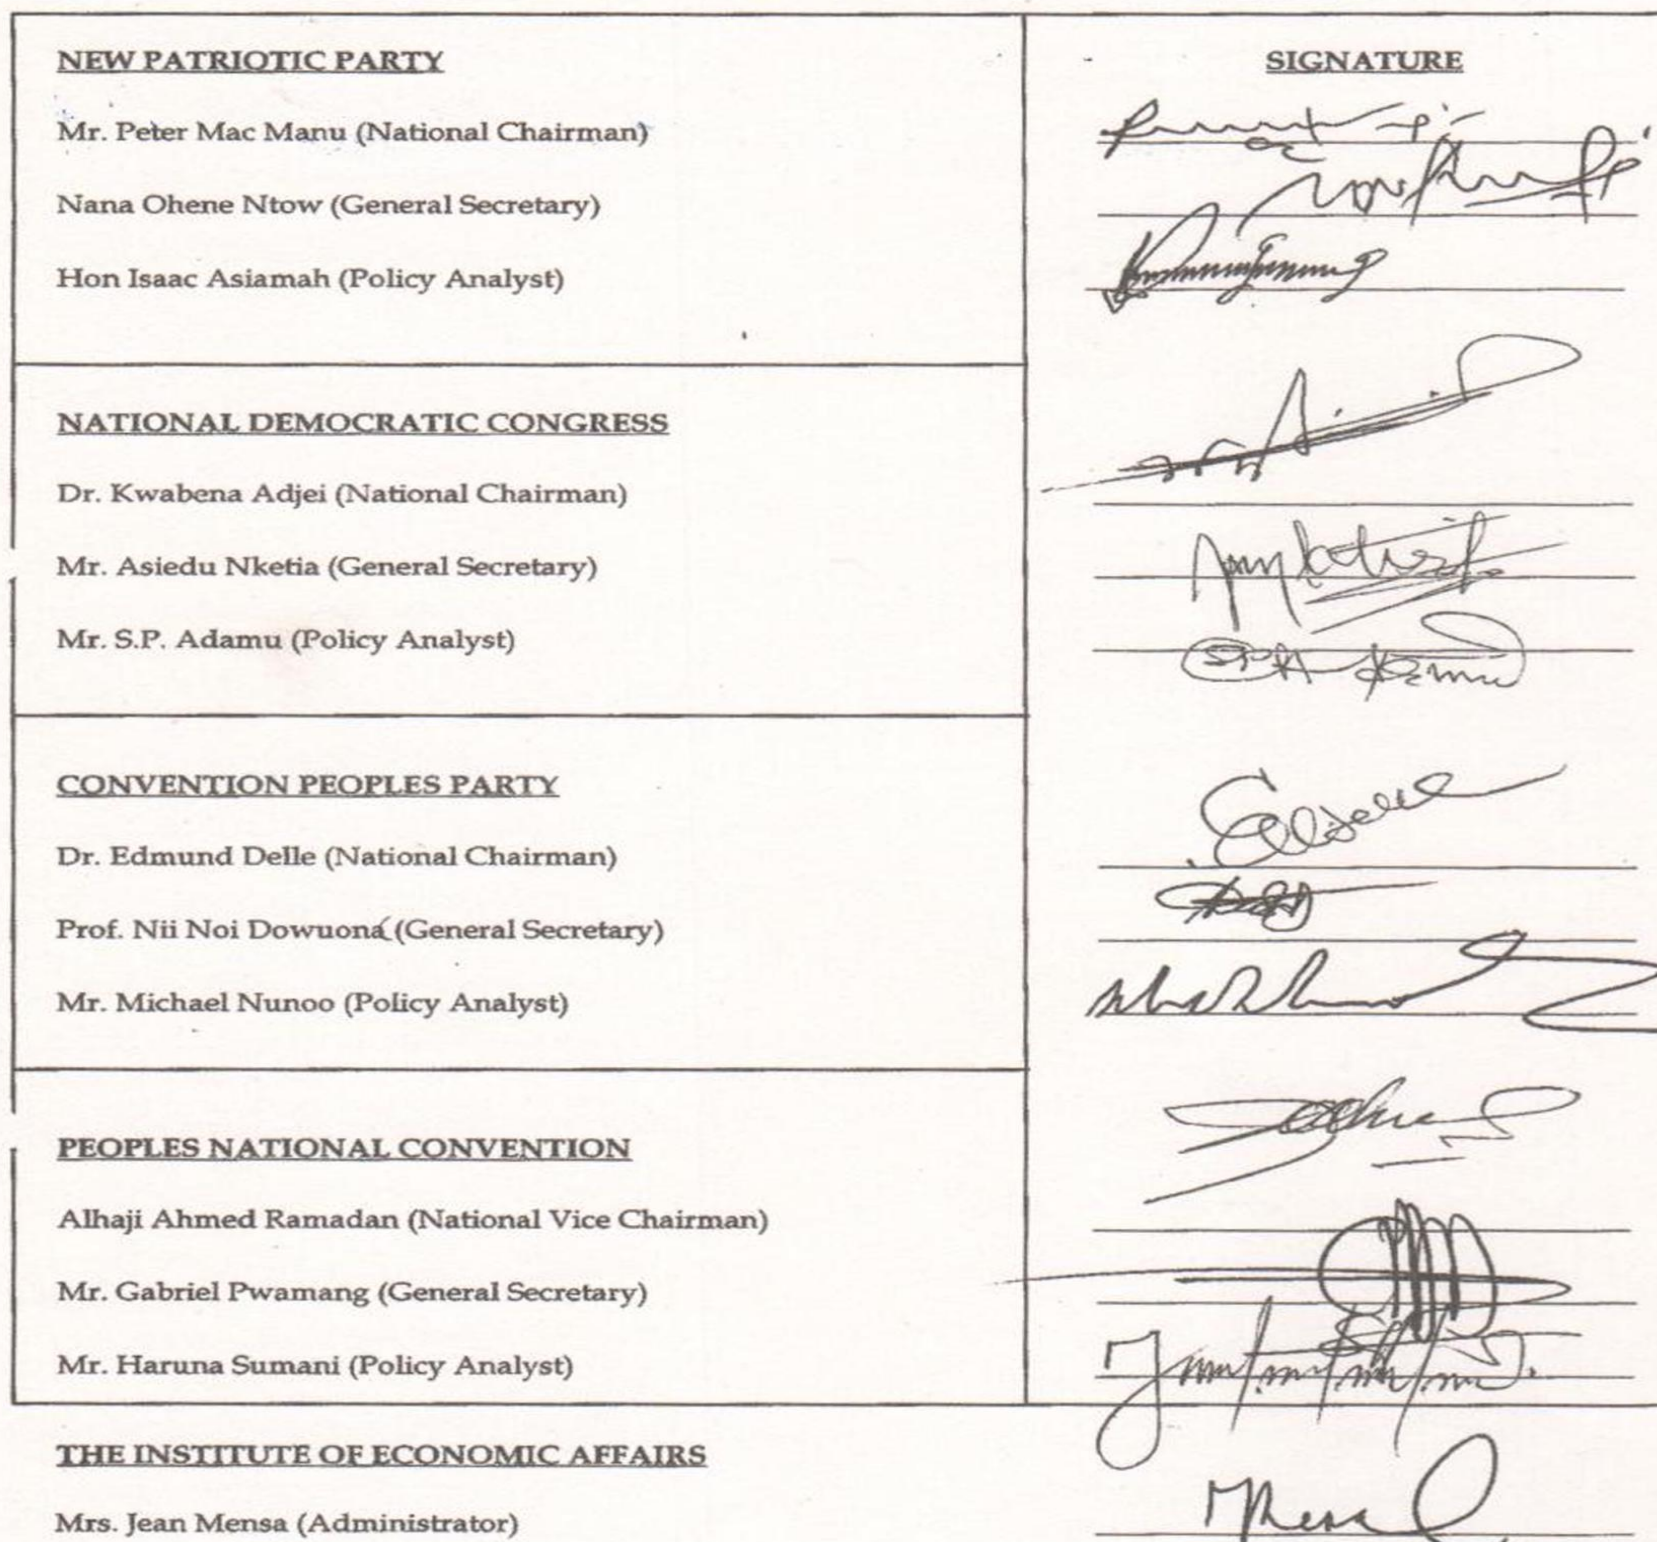 NEW PATRIOTIC PARTY
SIGNATURE
Mr. Peter Mac Manu (National Chairman)
Nana Ohene Ntow (General Secretary)
Hon Isaac Asiamah (Policy Analyst)
NATIONAL DEMOCRATIC CONGRESS
Dr. Kwabena Adjei (National Chairman)
Mr. Asiedu Nketia (General Secretary)
Mr. S.P. Adamu (Policy Analyst)
CONVENTION PEOPLES PARTY
Dr. Edmund Delle (National Chairman)
Prof. Nii Noi Dowuona (General Secretary)
Mr. Michael Nunoo (Policy Analyst)
PEOPLES NATIONAL CONVENTION
Alhaji Ahmed Ramadan (National Vice Chairman)
Mr. Gabriel Pwamang (General Secretary)
Mr. Haruna Sumani (Policy Analyst)
THE INSTITUTE OF ECONOMIC AFFAIRS
Mrs. Jean Mensa (Administrator)